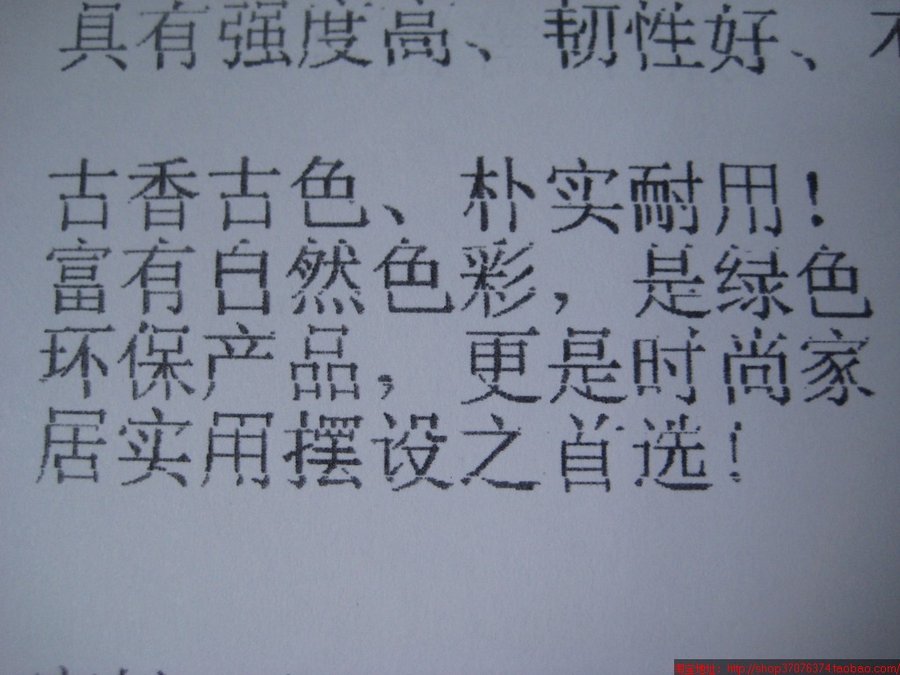 具有强度高、韧性好、不
古香古色、朴实耐用！
富有自然色彩，是绿色
环保产品，更是时尚家
居实用摆设之首选！
http://shop37076374.taobao.com/